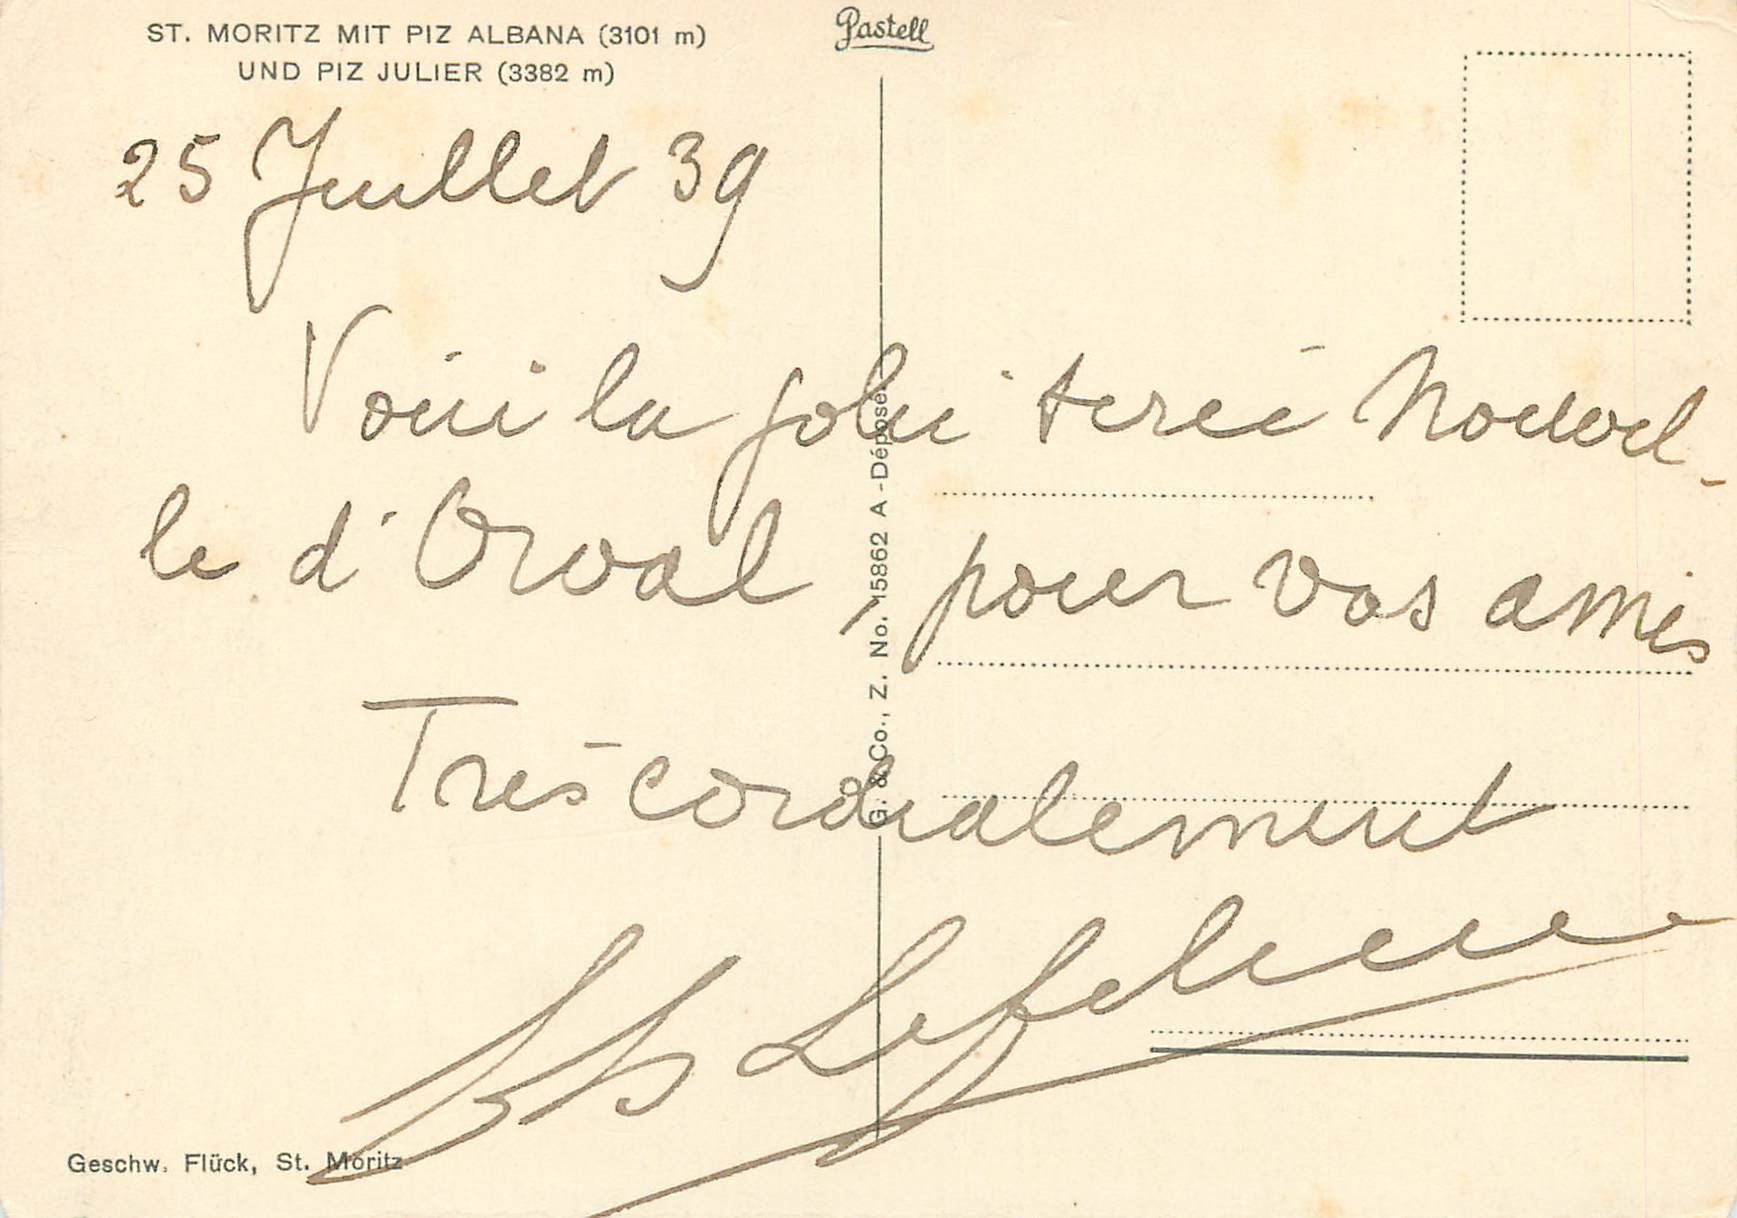 ST. MORITZ MIT PIZ ALBANA (3101 m)
UND PIZ JULIER (3382 m)
Pastell
25 Juillet 39
Voici la jolie série Nouvel-
le d'Orval, pour vos amis
Très cordialement
Lefebvre
G. & Co., Z. No. 15862 A - Déposé.
Geschw. Flück, St. Moritz